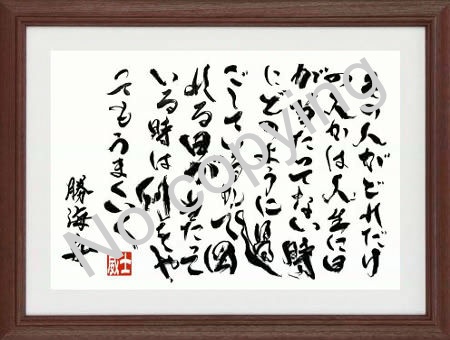 その人がどれだけ
の人かは人生に日
が当たってない時
にどのように過
ごしているかで図
れる日が当たって
いる時は何をや
ってもうまくいく
勝海舟
No copying